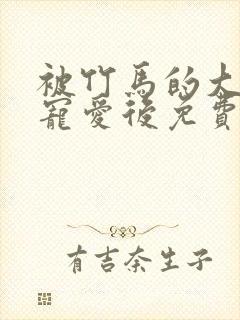 被竹馬的大
寵愛後免費
有吉奈生子